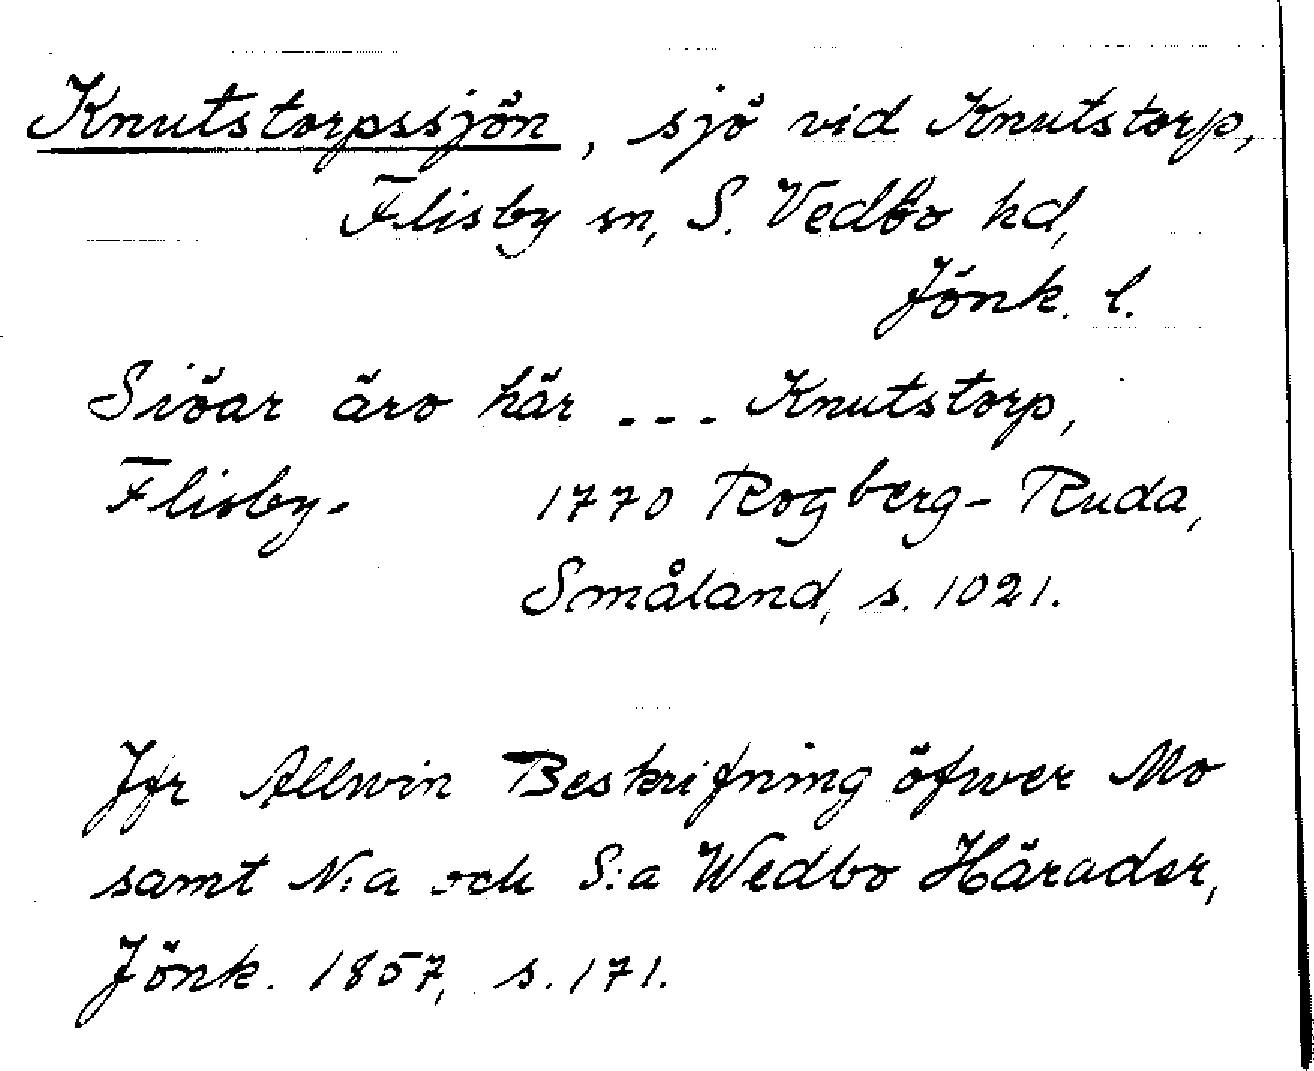 Knutstorpssjön, sjö vid Knutstorp,
Flisby sn, S. Vedbo hd,
Jönk. l.
Siöar äro här --- Knutstorp,
Flisby. 1770 Rogberg-Ruda,
Småland, s. 1021.
Jfr Allvin Beskrifning öfwer Mo
samt N:a och S:a Wedbo Härader,
Jönk. 1857, s. 171.